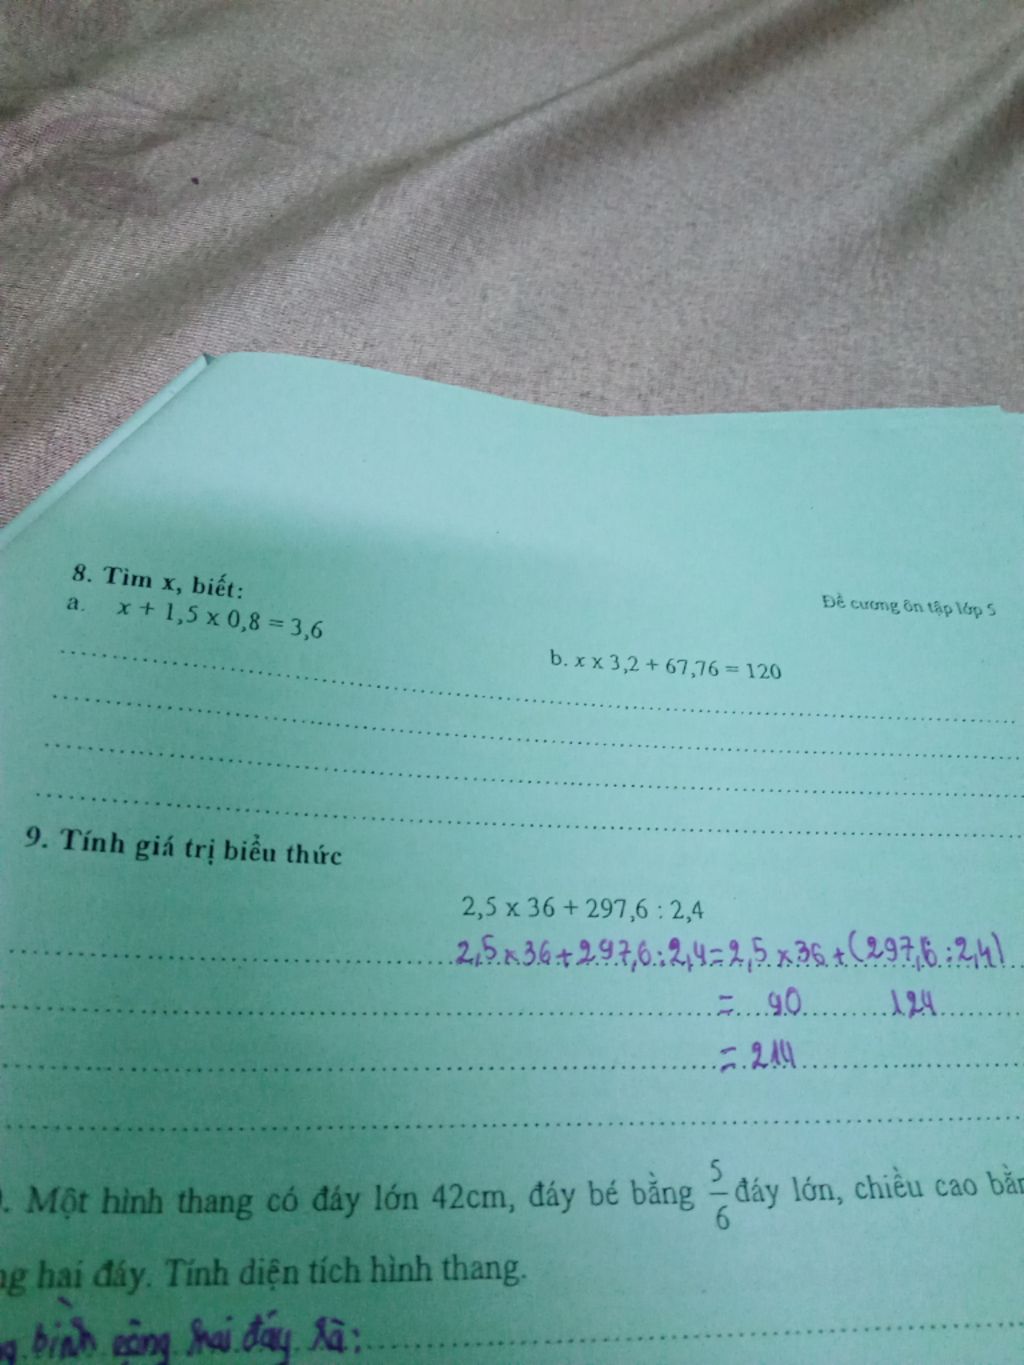 Đề cương ôn tập lớp 5
8. Tìm x, biết:
a. x + 1,5 x 0,8 = 3,6
b. x x 3,2 + 67,76 = 120
9. Tính giá trị biểu thức
2,5 x 36 + 297,6 : 2,4
2,5 x 36 + 297,6 : 2,4 = 2,5 x 36 + (297,6 : 2,4)
= 90 124
= 214
. Một hình thang có đáy lớn 42cm, đáy bé bằng 5/6 đáy lớn, chiều cao bằn
ng hai đáy. Tính diện tích hình thang.
bình cộng hai đáy là: